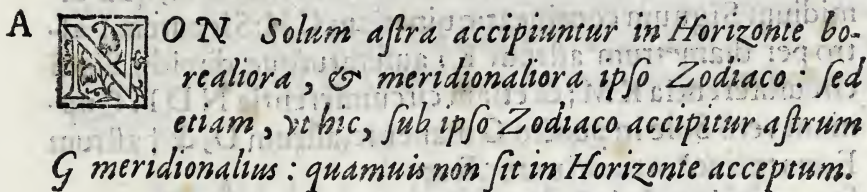 A NON Solum aſtra accipiuntur in Horizonte bo-
realiora, & meridionaliora ipſo Zodiaco: ſed
etiam, vt hic, ſub ipſo Zodiaco accipitur aſtrum
G meridionalius: quamuis non ſit in Horizonte acceptum.